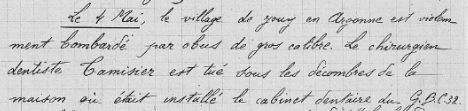 Le 4 Mai, le village de Jouy en Argonne est violem
ment bombardé par obus de gros calibre. Le chirurgien
dentiste Camisier est tué sous les décombres de la
maison où était installé le cabinet dentaire du G.B.C. 32.